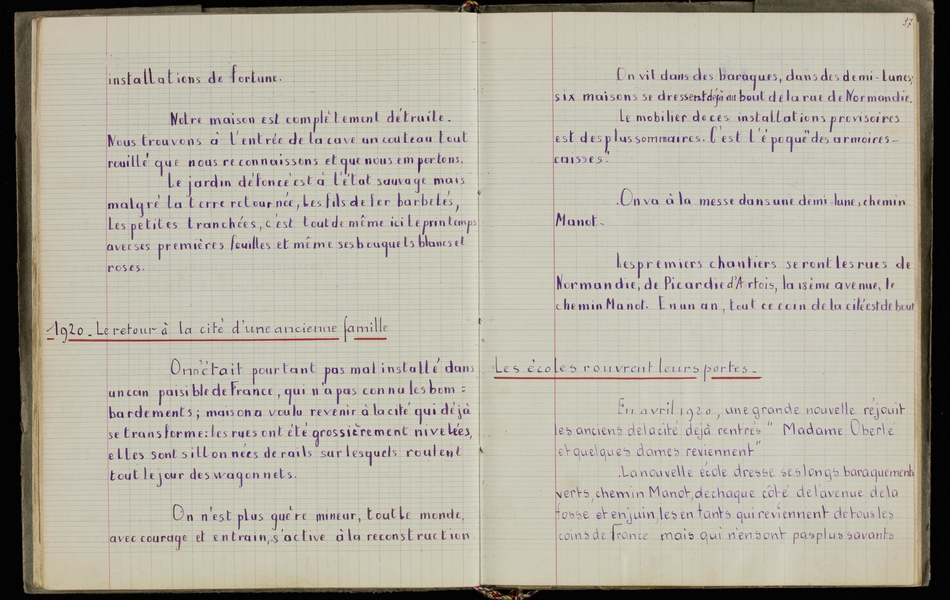 installations de fortune.
Notre maison est complètement détruite.
Nous trouvons à l'entrée de la cave un couteau tout
rouillé que nous reconnaissons et que nous emportons.
Le jardin défoncé est à l'état sauvage mais
malgré la terre retournée, les fils de fer barbelés,
les petites tranchées, c'est tout de même ici le printemps
avec ses premières feuilles et même ses bouquets blancs et
roses.
1920 - Le retour à la cité d'une ancienne famille
On n'était pourtant pas mal installé dans
un coin paisible de France, qui n'a pas connu les bom =
bardements ; mais on a voulu revenir à la cité qui déjà
se transforme : les rues ont été grossièrement nivelées,
elles sont sillonnées de rails sur lesquels roulent
tout le jour des wagonnets.
On n'est plus guère mineur, tout le monde,
avec courage et entrain, s'active à la reconstruction
37
On vit dans des baraques, dans des demi-lunes;
six maisons se dressent déjà au bout de la rue de Normandie.
Le mobilier de ces installations provisoires
est des plus sommaires. C'est l'époque "des armoires-
caisses."
On va à la messe dans une demi-lune, chemin
Manot.
Les premiers chantiers seront les rues de
Normandie, de Picardie d'Artois, la 15ème avenue, le
chemin Manot. En un an, tout ce coin de la cité est debout
Les écoles rouvrent leurs portes -
En avril 1920, une grande nouvelle réjouit
les anciens de la cité déjà rentrés " Madame Oberle
et quelques dames reviennent "
La nouvelle école dresse ses longs baraquements
verts, chemin Manot, de chaque côté de l'avenue de la
fosse et en juin, les enfants qui reviennent de tous les
coins de France mais qui n'en sont pas plus savants